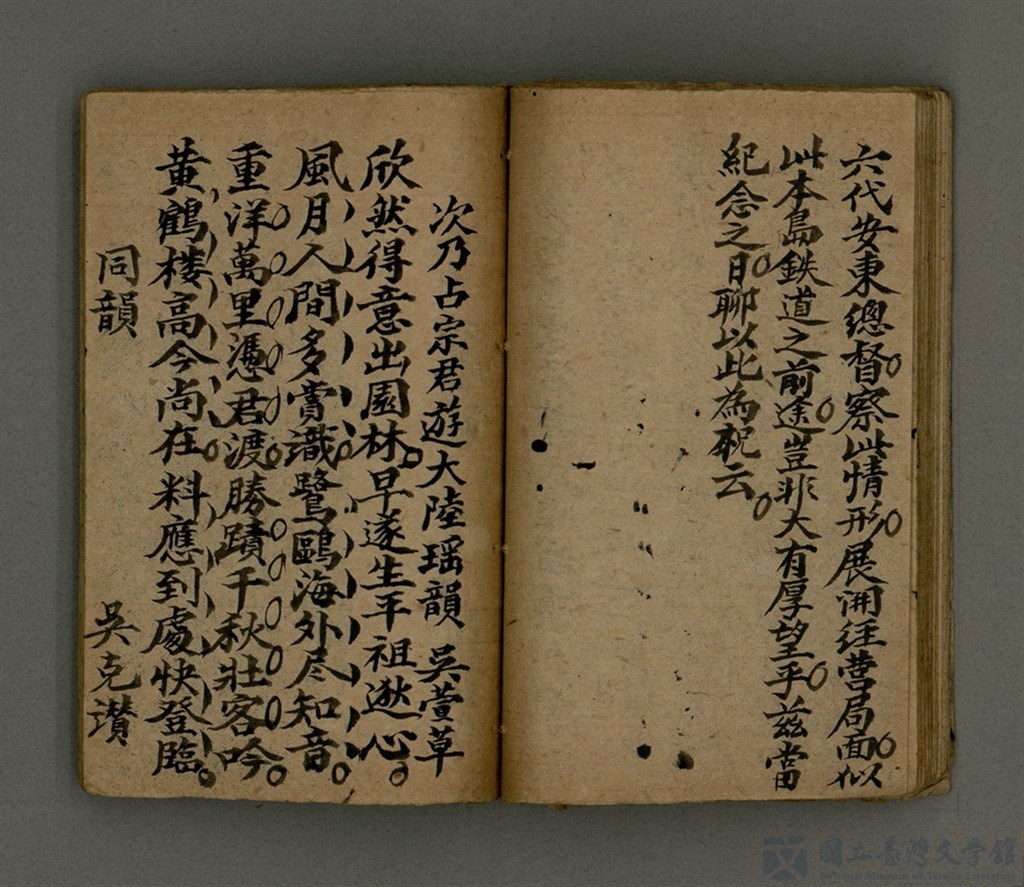 六代安東總督。察此情形。展開经营局面。似
此本島鉄道之前途。豈非大有厚望乎。茲當
紀念之日。聊以此為祝云。
次乃占宗君遊大陸瑶韻　吳萱草
欣然得意出園林。早遂生平祖逖心。
風月人間多賞識。鷺鷗海外尽知音。
重洋萬里憑君渡。勝蹟千秋壯客吟。
黃鶴楼高今尚在。料應到處快登臨。
同韻　吳克讚
國立臺灣文學館
National Museum of Taiwan Literature